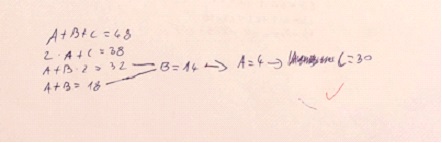 A+B+C=48
2·A+C=38
A+B·2=32 → B=14 → A=4 → C=30
A+B=18